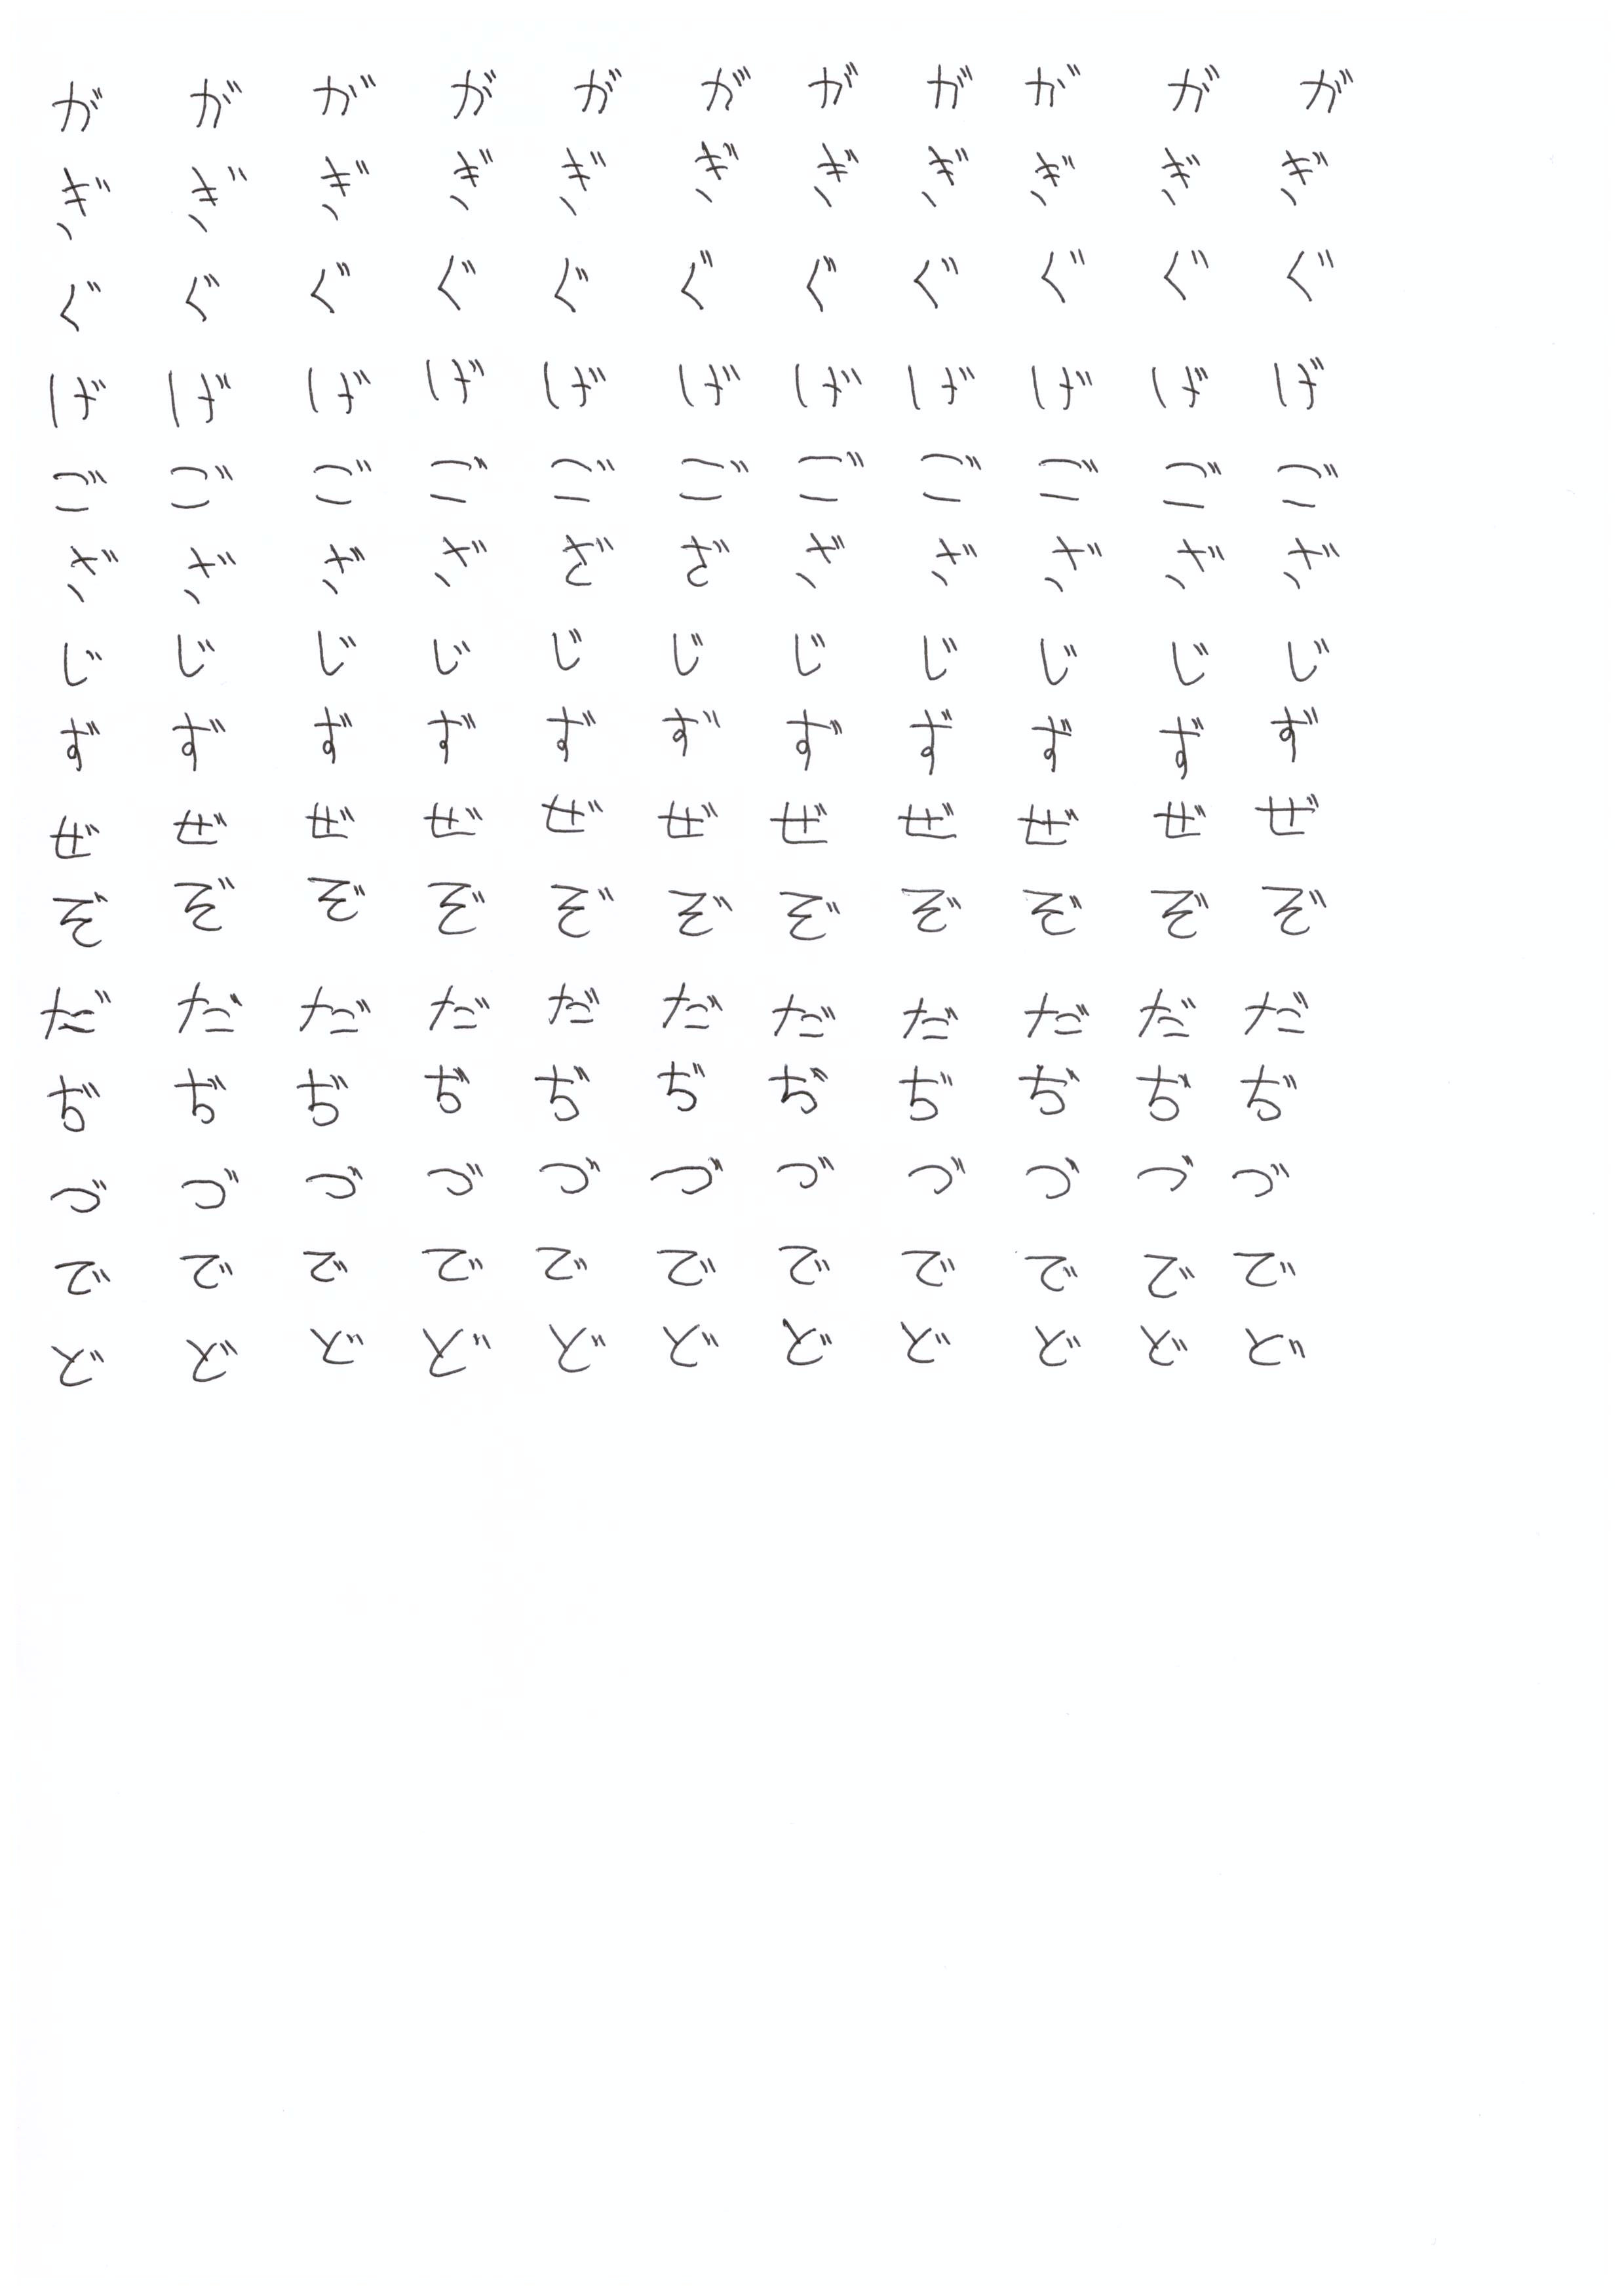 が が が が が が が が が が が
ぎ ぎ ぎ ぎ ぎ ぎ ぎ ぎ ぎ ぎ ぎ
ぐ ぐ ぐ ぐ ぐ ぐ ぐ ぐ ぐ ぐ ぐ
げ げ げ げ げ げ げ げ げ げ げ
ご ご ご ご ご ご ご ご ご ご ご
ざ ざ ざ ざ ざ ざ ざ ざ ざ ざ ざ
じ じ じ じ じ じ じ じ じ じ じ
ず ず ず ず ず ず ず ず ず ず ず
ぜ ぜ ぜ ぜ ぜ ぜ ぜ ぜ ぜ ぜ ぜ
ぞ ぞ ぞ ぞ ぞ ぞ ぞ ぞ ぞ ぞ ぞ
だ だ だ だ だ だ だ だ だ だ だ
ぢ ぢ ぢ ぢ ぢ ぢ ぢ ぢ ぢ ぢ ぢ
づ づ づ づ づ づ づ づ づ づ づ
で で で で で で で で で で で
ど ど ど ど ど ど ど ど ど ど ど